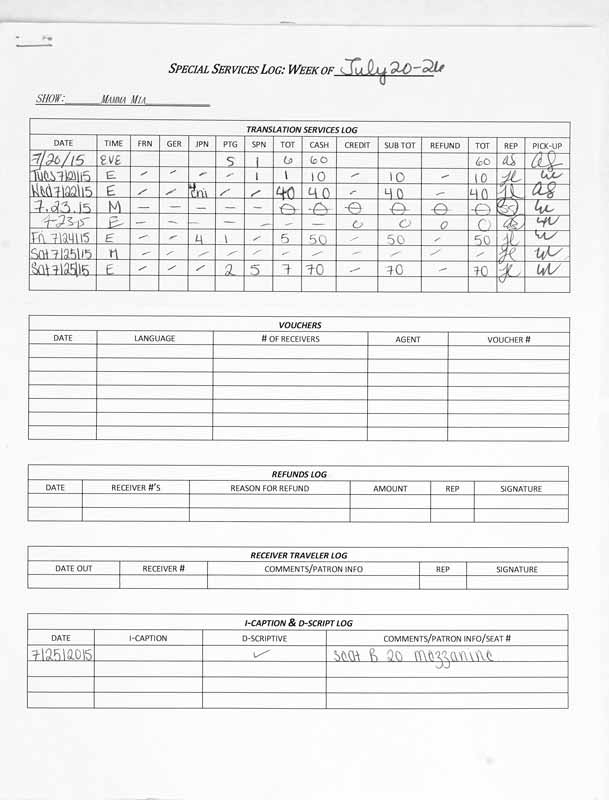 SPECIAL SERVICES LOG: WEEK OF July 20-26
SHOW: MAMMA MIA
TRANSLATION SERVICES LOG
DATE TIME FRN GER JPN PTG SPN TOT CASH CREDIT SUB TOT REFUND TOT REP PICK-UP
7/20/15 EVE 5 1 6 60 60 as AS
Tues 7/21/15 E - - - - 1 1 10 - 10 - 10 JL
Wed 7/22/15 E - - 4 - - 40 40 - 40 - 40 JL AS
7.23.15 M - - - - - 0 0 0 0 0 0
7-23-15 E - - - - - - - 0 0 0 0 as
Fri 7/24/15 E - - 4 1 - 5 50 - 50 - 50 JL
Sat 7/25/15 M - - - - - - - - - - - JL
Sat 7/25/15 E - - - 2 5 7 70 - 70 - 70 JL
VOUCHERS
DATE LANGUAGE # OF RECEIVERS AGENT VOUCHER #
REFUNDS LOG
DATE RECEIVER #'S REASON FOR REFUND AMOUNT REP SIGNATURE
RECEIVER TRAVELER LOG
DATE OUT RECEIVER # COMMENTS/PATRON INFO REP SIGNATURE
I-CAPTION & D-SCRIPT LOG
DATE I-CAPTION D-SCRIPTIVE COMMENTS/PATRON INFO/SEAT #
7/25/2015 ✓ Seat B 20 Mezzanine